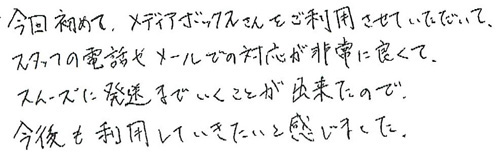 今回初めて、メディアボックスさんをご利用させていただいて、
スタッフの電話やメールでの対応が非常に良くて、
スムーズに発送までいくことが出来たので、
今後も利用していきたいと感じました。